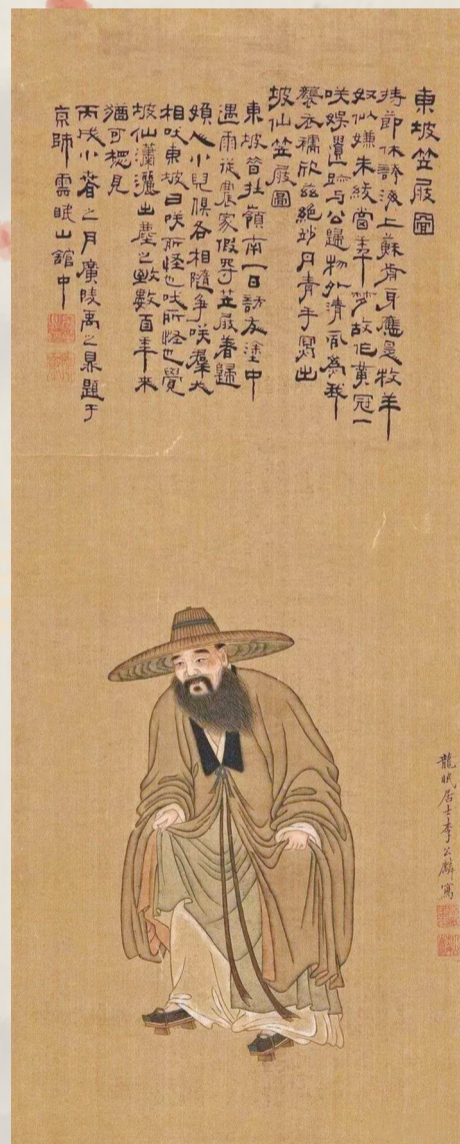 東坡笠屐圖
持節休誇海上蘇前身應是牧羊
奴似嫌朱紱當年夢故作黃冠一
咲娛遺跡与公歸物外清風為我
襲衣襦欣玆絕妙丹青手寫出
坡仙笠屐圖
東坡昔在嶺南一日訪友塗中
遇雨從農家假笠屐着歸
婦人小兒俱各相隨爭咲羣犬
相吠東坡曰咲所怪也吠所怪也覺
坡仙瀟灑出塵之致數百年來
猶可想見
丙戌小春之月廣陵禹之鼎題于
京師雲眠山館中
龍眠居士李公麟寫